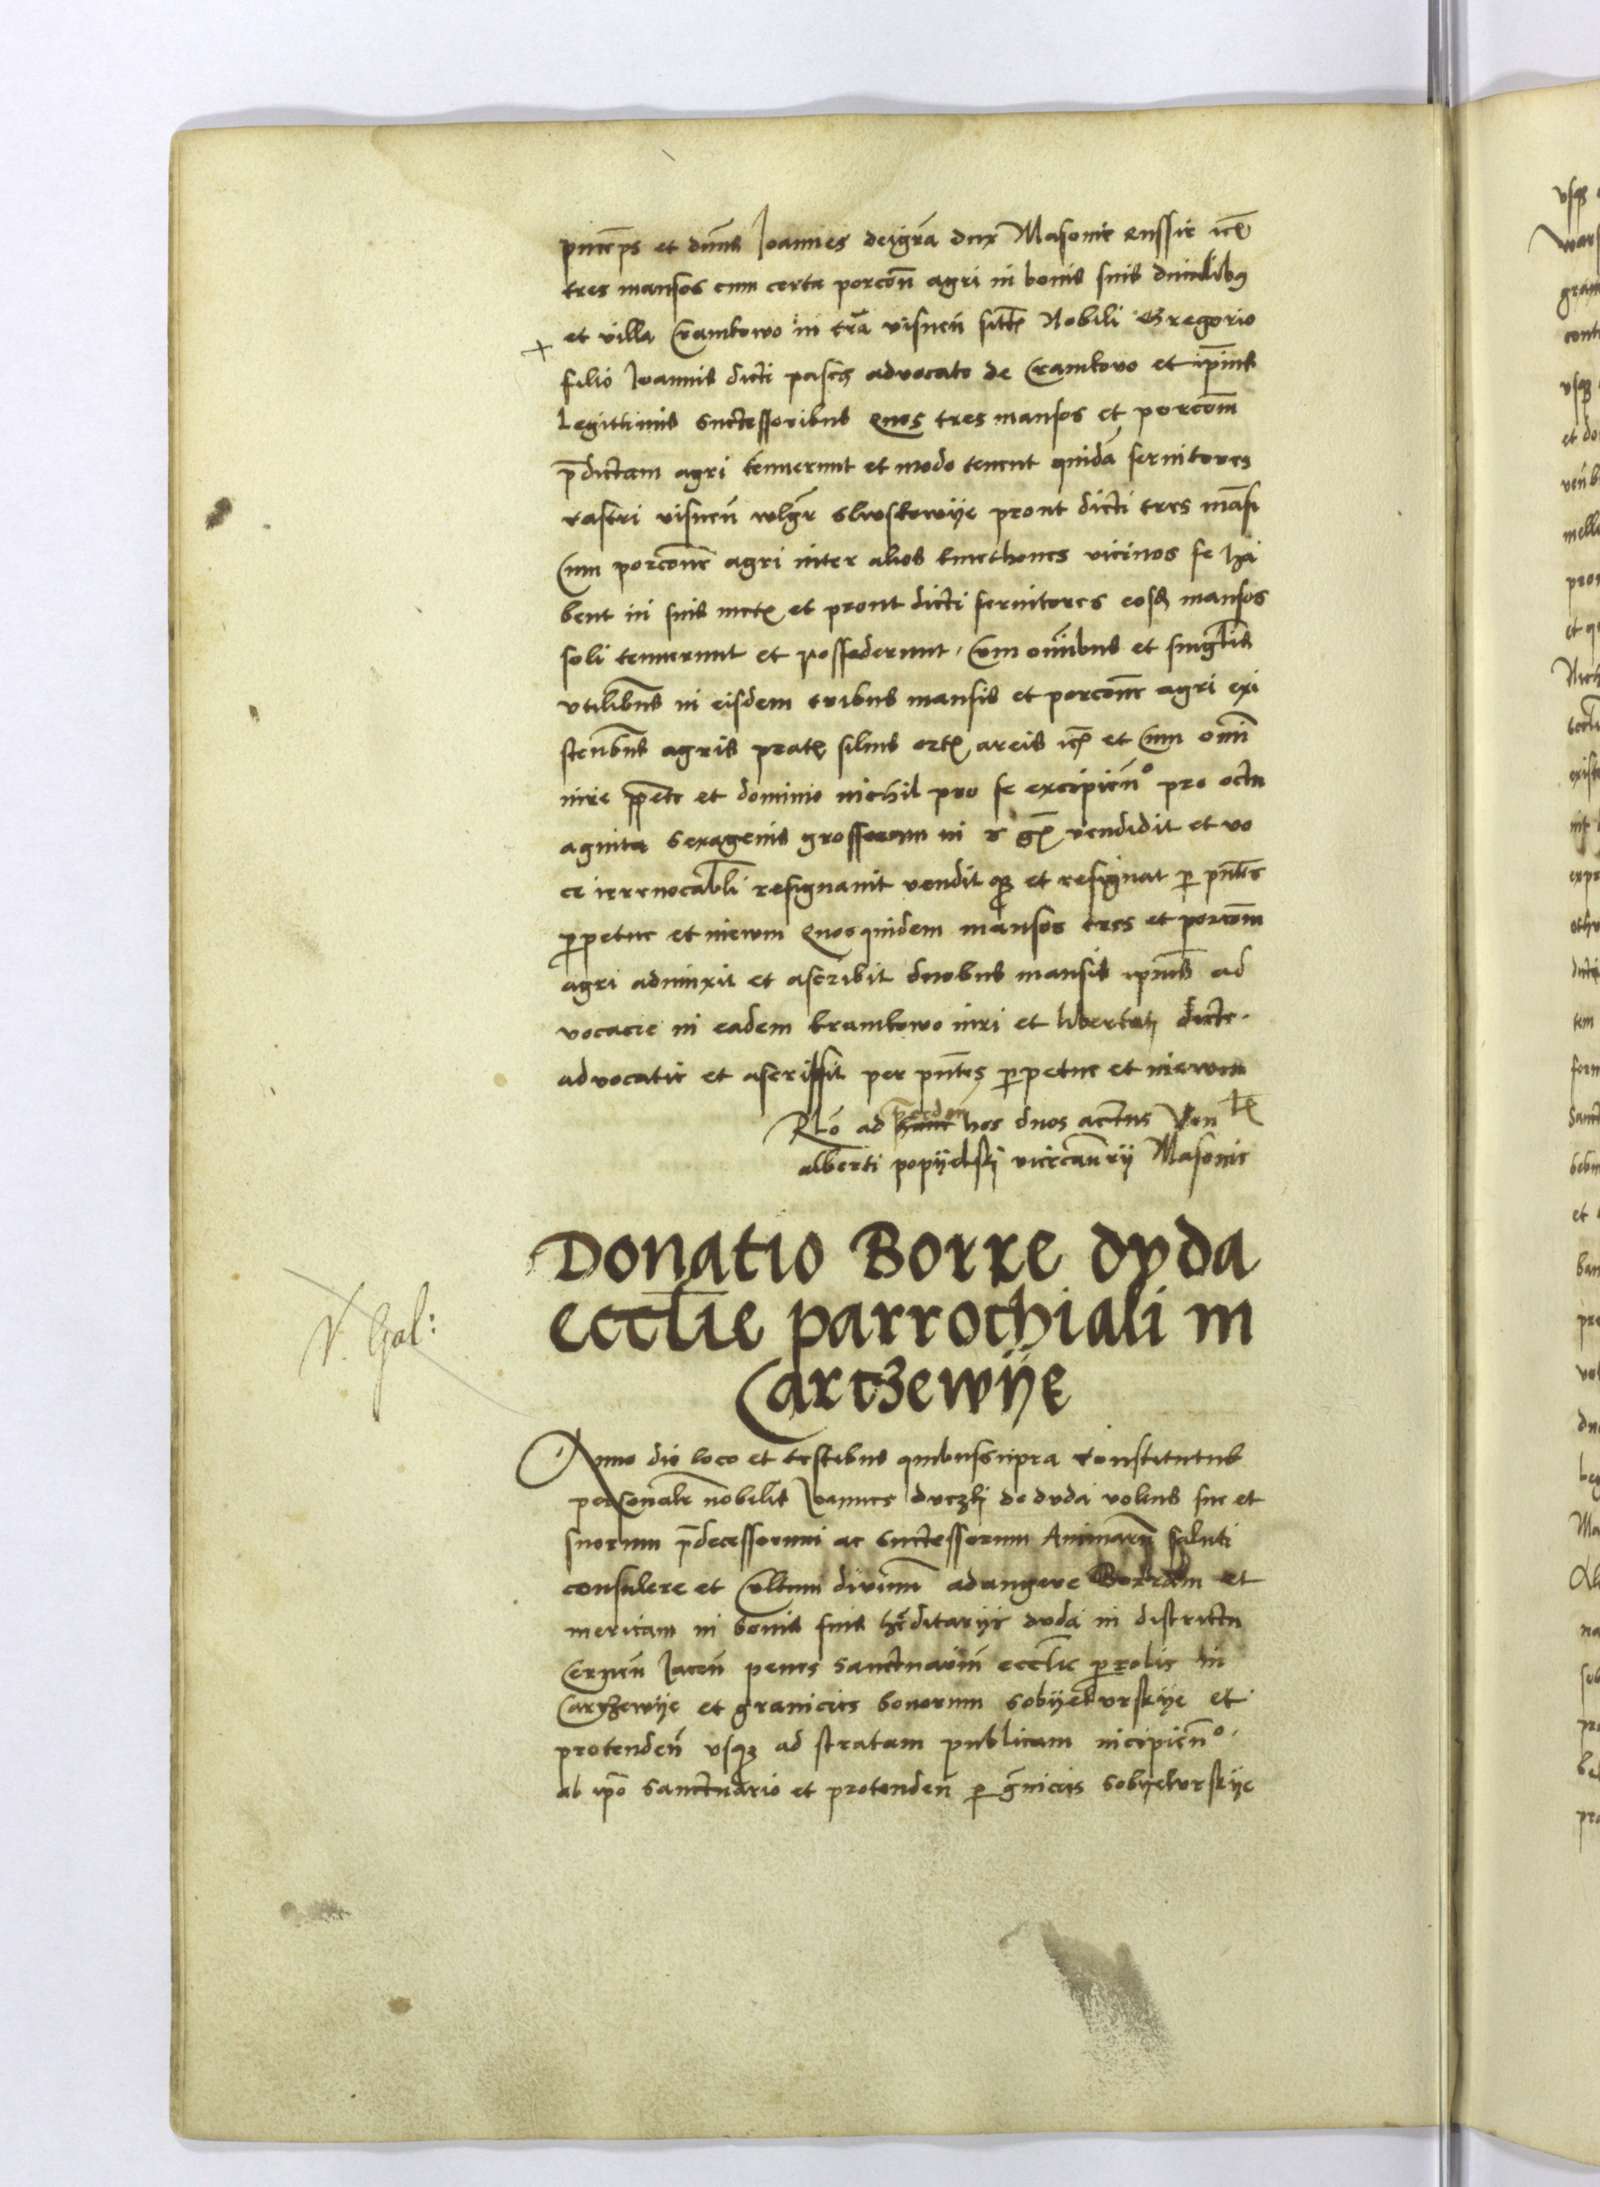 princeps et dnus Joannes dei gra dux Masouie Russie ice
tres mansos cum certa porcon agri in bonis suis
et villa Cramkowo in tra visnen Nobili Gregorio
filio Joannis dicti pasch advocato de Cramkowo et ipius
Legittimis Successoribus Quos tres mansos et porcom
pdictam agri tenuerunt et modo tenent quida seruitores
castri visnen wlgr prout dicti tres masi
Cum porcone agri inter alios kmethones vicinos se ha
bent in suis met et prout dicti seruitores eosd mansos
soli tenuerunt et possederunt Cum omibus et singlis
vtilibus in eisdem tribus mansis et porcone agri exi
stenbus agris prat siluis ort areis ice et Cum omi
iure ppete et dominio nichil pro se excipien pro octu
aginta Sexagenis grossorum in vendidit et vo
ce irreuocabli resignauit vendit q3 et resignat p pntes
ppetue et in ewm Quosquidem mansos tres et porcom
agri adiunxit et ascribit duobus mansis ipius ad
vocacie in eadem kramkowo iuri et libertati dicte
advocatie et ascripsit per pntes ppetue et in ewm
Rlo ad hunc hos duos actus Ven
alberti popyelskj vicecancrij Masouie
Donatio Borre dvda
ecclie parrochiali in
Cartzewije
V. Gal:
Anno die loco et testibus quibussupra Constitutus
personalr nobilis Joannes de dvda volens sue et
suorum pdecessorum ac Successorum Animaru saluti
consulere et Cultum diuinum adaugere Borram et
mericam in bonis suis hereditariis dvda in districtu
Cernen Jacen penes Sanctuariu ecclie prolis in
Cartzewije et granicies bonorum Sobijekvrskije et
protenden vsq3 ad stratam publicam incipien
ab ipo Sanctuario et protenden p gnicies Sobijekvrskije